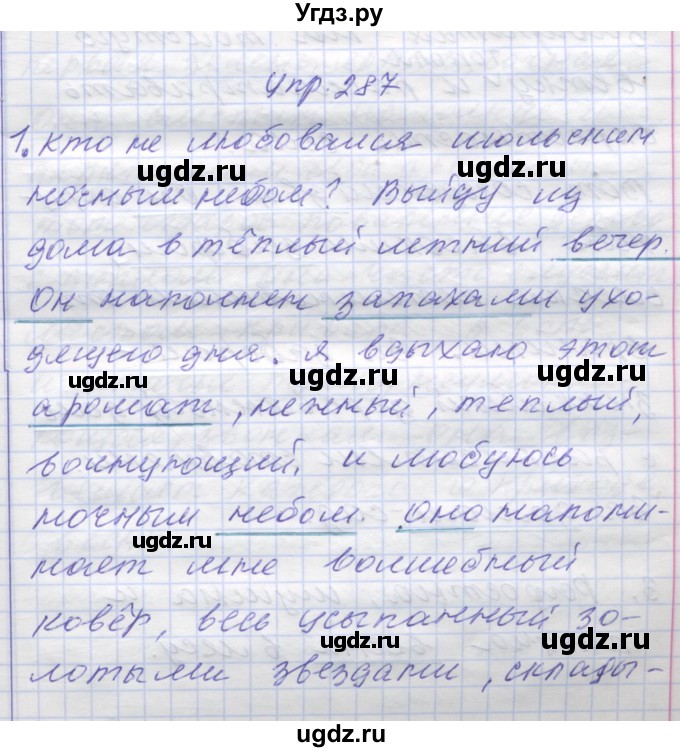 Угдз.ру
Упр. 287
1. Кто не любовался июльским
ночным небом? Выйду из
дома в тёплый летний вечер.
Он наполнен запахами ухо-
дящего дня. Я вдыхаю этот
аромат, нежный, теплый,
волнующий. и любуюсь
ночным небом. оно напоми-
нает мне волшебный
ковёр, весь усыпанный зо-
лотыми звездами, склады-
ugdz.ru
ugdz.ru
ugdz.ru
ugdz.ru
ugdz.ru
ugdz.ru
ugdz.ru
ugdz.ru
ugdz.ru
ugdz.ru
ugdz.ru
ugdz.ru